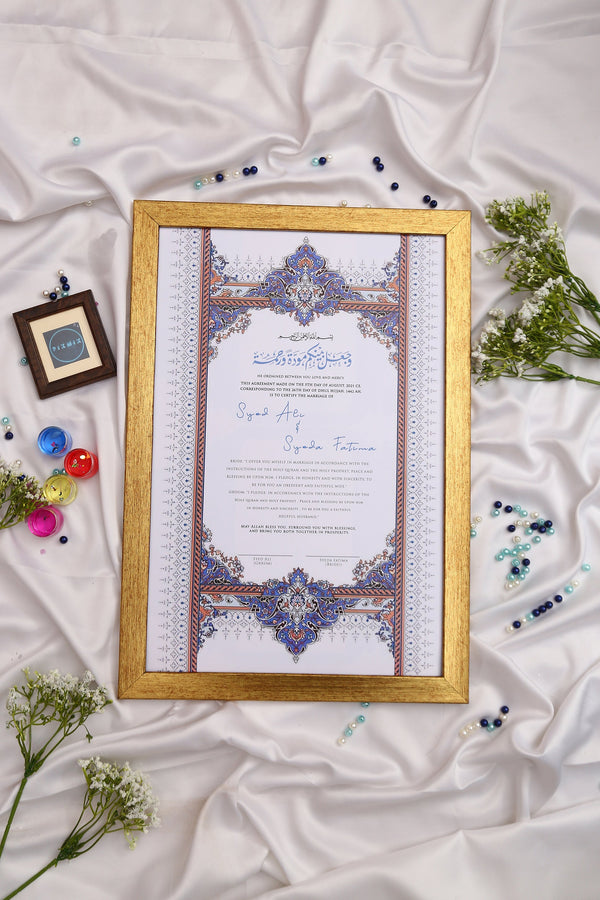 بسم الله الرحمن الرحيم
وجعل بينكم مودة ورحمة
HE ORDAINED BETWEEN YOU LOVE AND MERCY.
THIS AGREEMENT MADE ON THE 5TH DAY OF AUGUST 2021 CE
CORRESPONDING TO THE 26TH DAY OF DHUL HIJJAH, 1442 AH
IS TO CERTIFY THE MARRIAGE OF
Syed Ali
&
Syeda Fatima
BRIDE: "I OFFER YOU MYSELF IN MARRIAGE IN ACCORDANCE WITH THE
INSTRUCTIONS OF THE HOLY QURAN AND THE HOLY PROPHET, PEACE AND
BLESSING BE UPON HIM. I PLEDGE, IN HONESTY AND WITH SINCERITY, TO
BE FOR YOU AN OBEDIENT AND FAITHFUL WIFE."
GROOM: "I PLEDGE, IN ACCORDANCE WITH THE INSTRUCTIONS OF THE
HOLY QURAN AND HOLY PROPHET, PEACE AND BLESSING BE UPON HIM
IN HONESTY AND SINCERITY, TO BE FOR YOU A FAITHFUL
HELPFUL HUSBAND."
MAY ALLAH BLESS YOU, SURROUND YOU WITH BLESSINGS,
AND BRING YOU BOTH TOGETHER IN PROSPERITY.
SYED ALI
(GROOM)
SYEDA FATIMA
(BRIDE)